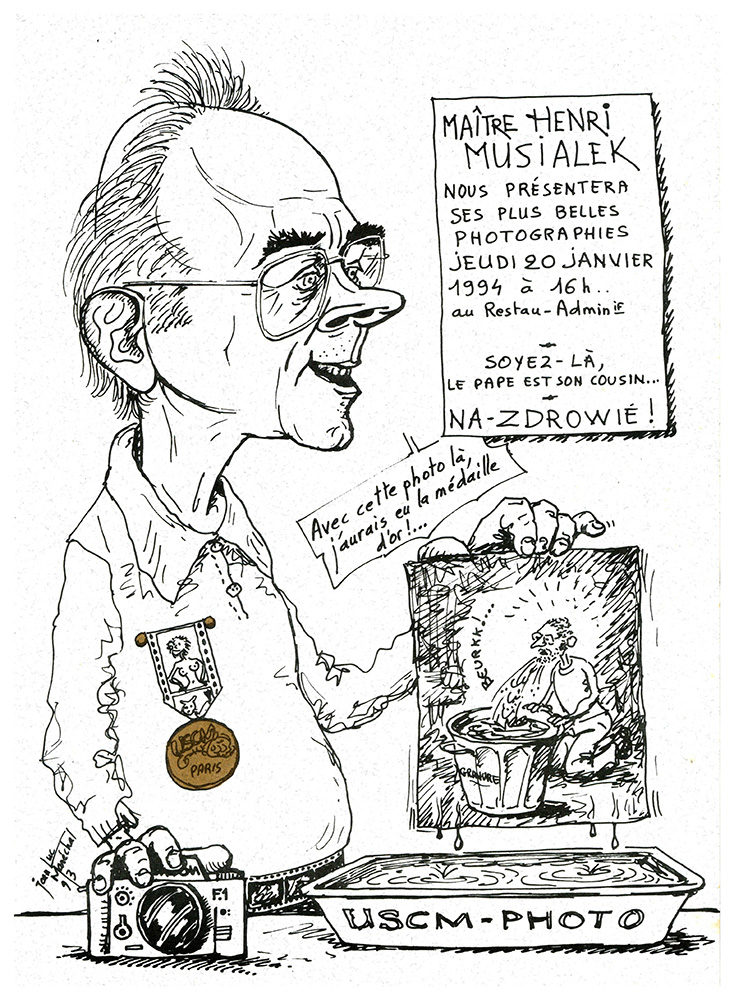 MAÎTRE HENRI
MUSIALEK
NOUS PRÉSENTERA
SES PLUS BELLES
PHOTOGRAPHIES
JEUDI 20 JANVIER
1994 à 16h..
au Restau-Adminif
SOYEZ-LÀ,
LE PAPE EST SON COUSIN...
NA-ZDROWIÉ !
Avec cette photo là,
j'aurais eu la médaille
d'or !...
BEURKK...
GRAVURE
USCM
PARIS
jean Luc
93
F.1
USCM-PHOTO